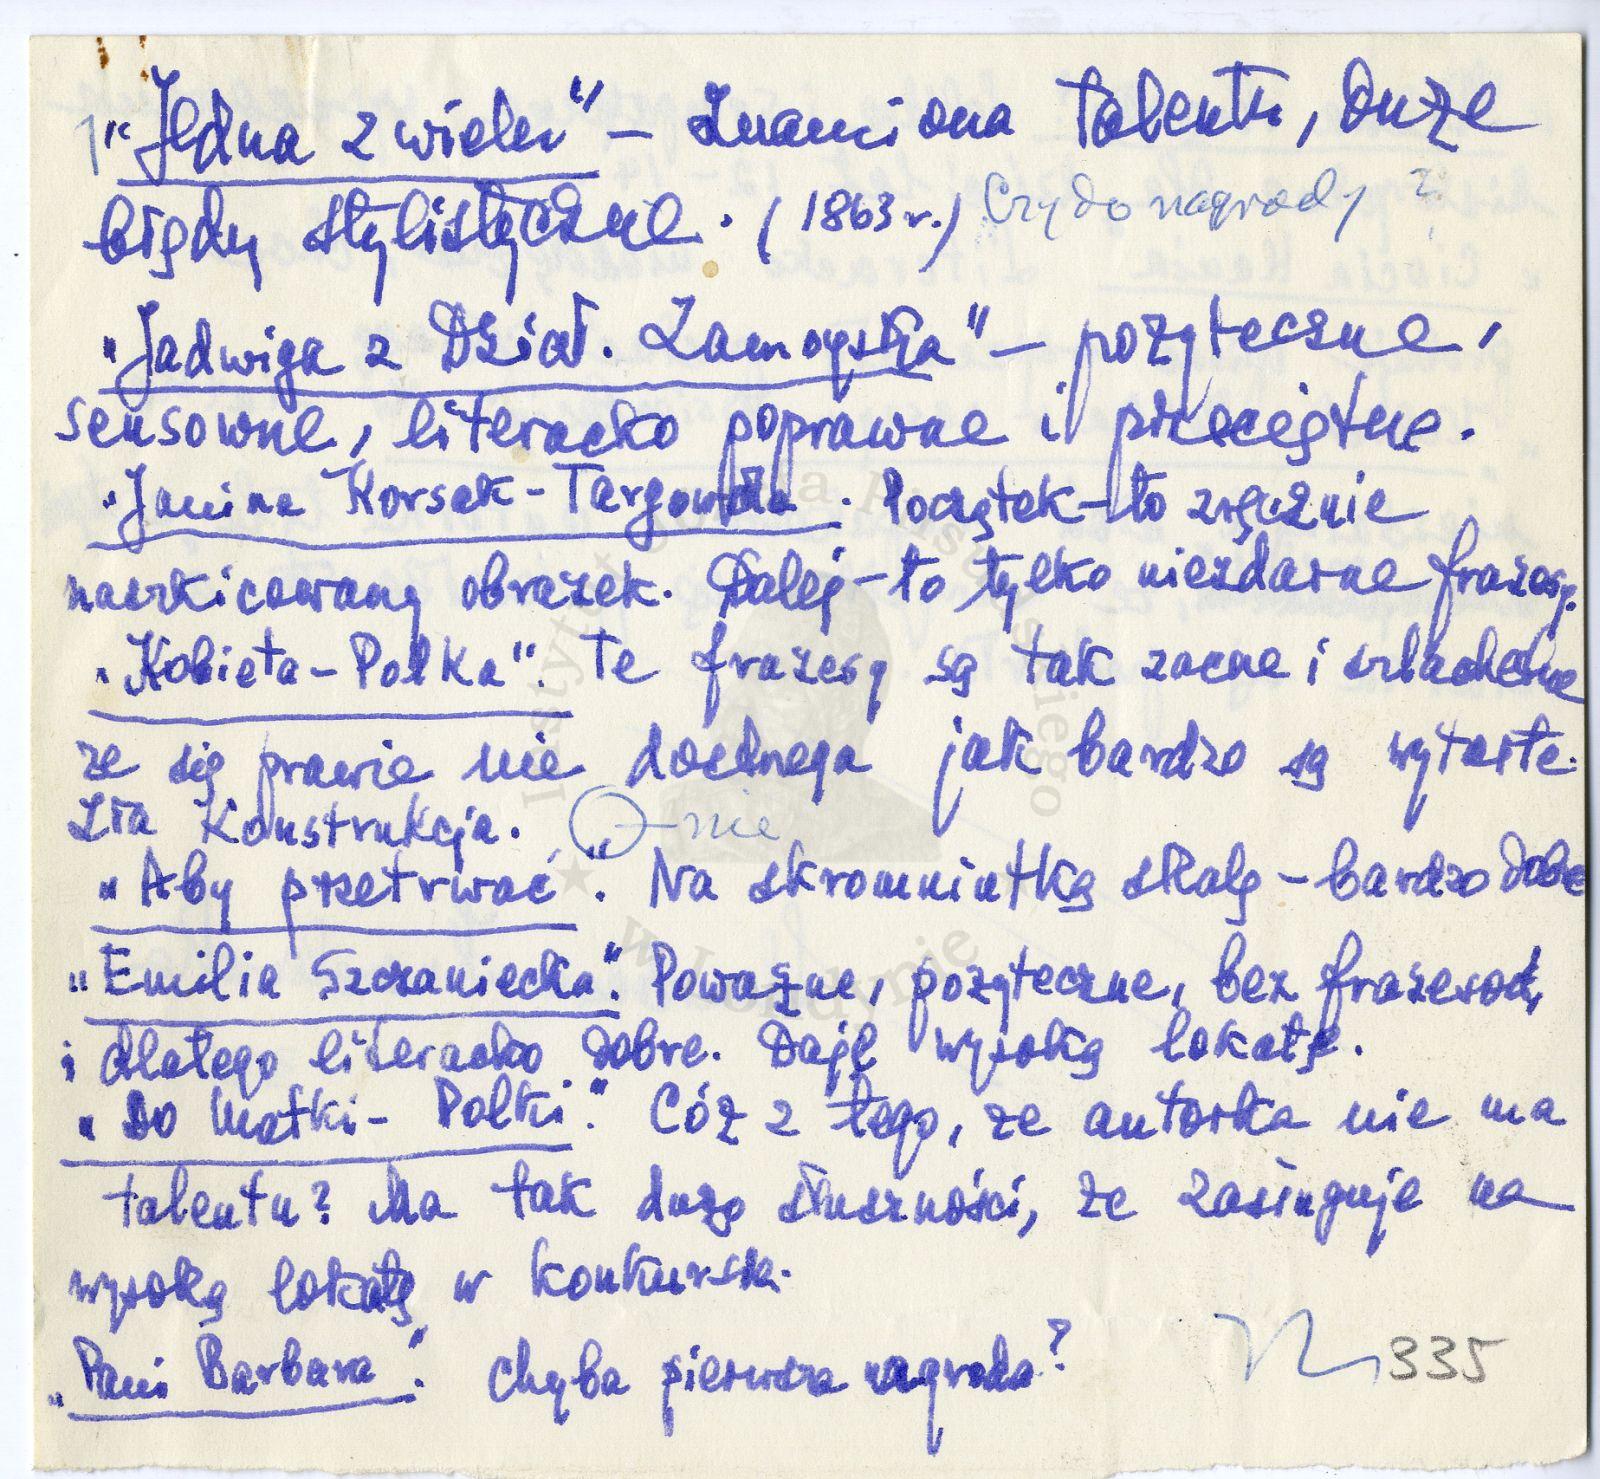 1) "Jedna z wielu" – Znamiona talentu, duże
błędy stylistyczne. (1863 r.) Czy do nagrody?
"Jadwiga z Dział. Zamoyska" – pożyteczne,
sensowne, literacko poprawne i przeciętne.
"Janina Korsak-Targowska. Początek – to zręcznie
naszkicowany obrazek. Dalej – to tylko niezdarne frazesy.
"Kobieta-Polka". Te frazesy są tak zacne i szlachetne
że się prawie nie dostrzega jak bardzo są wytarte.
Zła Konstrukcja. – nie
"Aby przetrwać". Na skromniutką skalę – bardzo dobre
"Emilia Szczaniecka". Poważne, pożyteczne, bez frazesów,
i dlatego literacko dobre. Daję wysoką lokatę.
"Do Matki-Polki". Cóż z tego, że autorka nie ma
talentu? Ma tak dużo słuszności, że zasługuje na
wysoką lokatę w konkursie.
"Pani Barbara". Chyba pierwsza nagroda?
335
Instytut Józefa Piłsudskiego
w Londynie